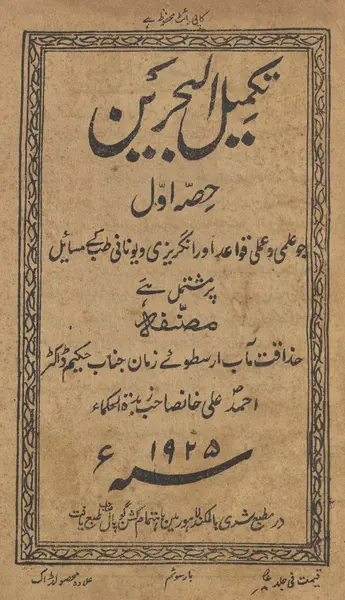 کاپی رائٹ محفوظ ہے
تکمیل البحرین
حصہ اوّل
جو علمی و عملی قواعد اور انگریزی و یونانی طب کے مسایل
پر مشتمل ہے
مصنفہ
حذاقت مآب ارسطوئے زمان جناب حکیم ڈاکٹر
احمد علی خانصاحب زبدۃ الحکماء
سنہ ۱۹۲۵ ء
در مطبع لاہور میں باہتمام گوپال طبع یافت
قیمت فی جلد
بار سوئم
علاوہ محصولڈاک